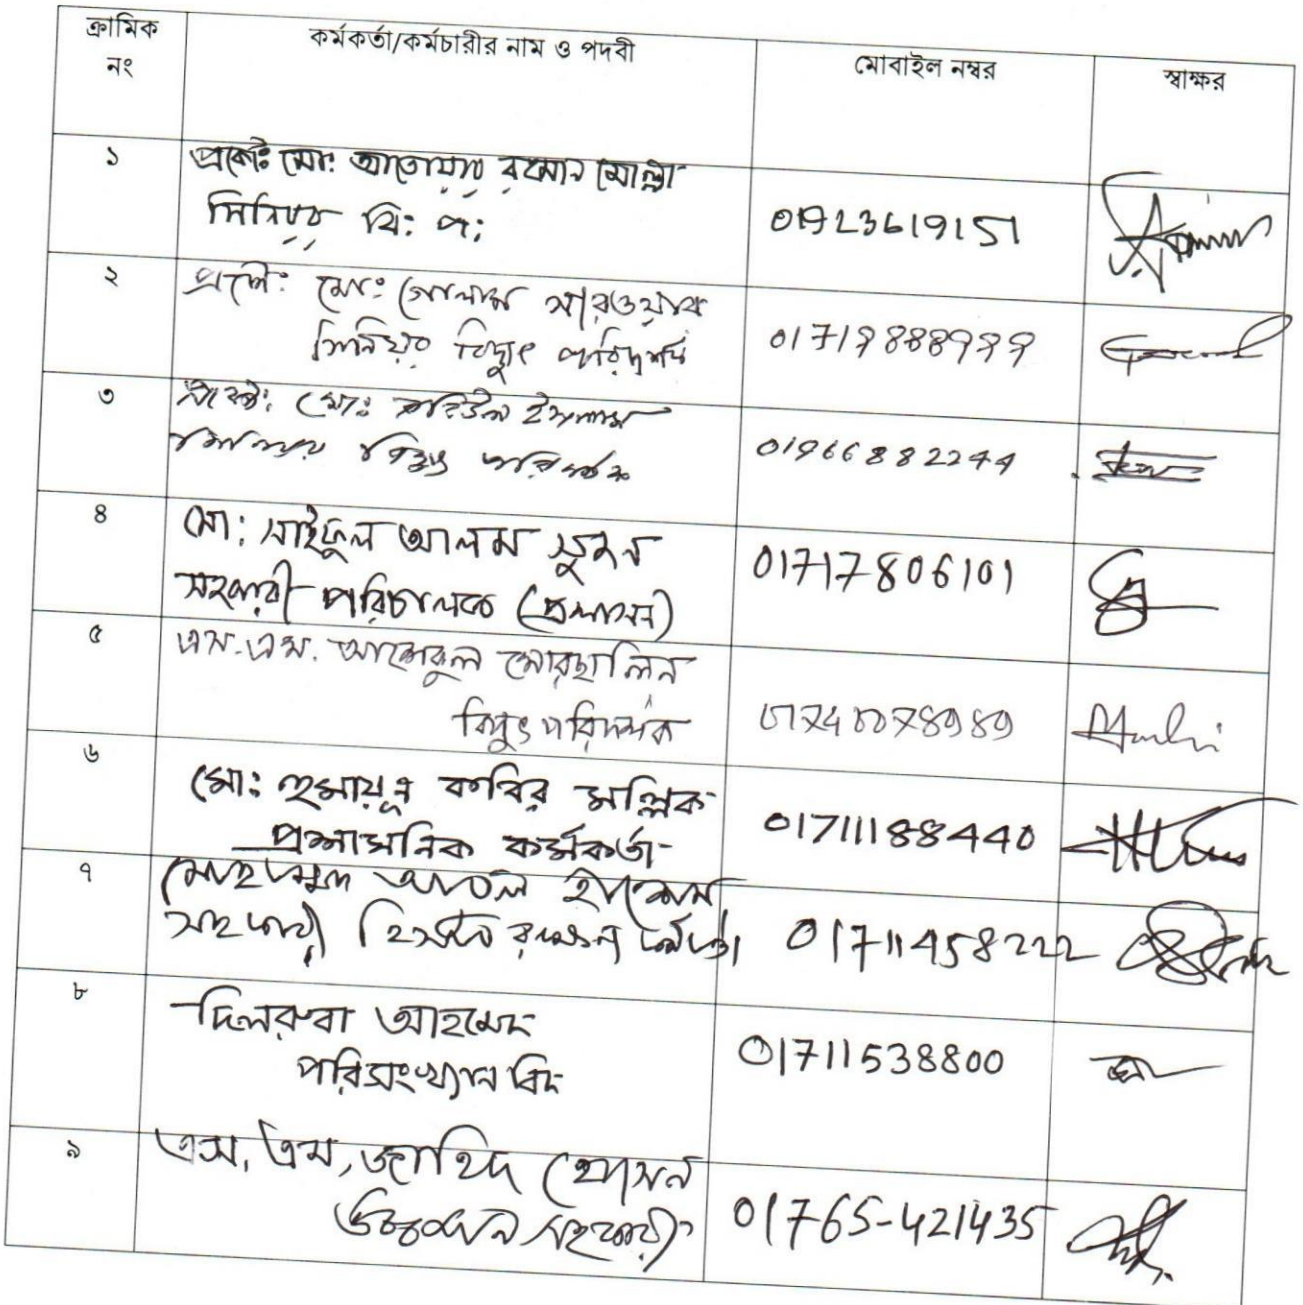 ক্রামিক নং
কর্মকর্তা/কর্মচারীর নাম ও পদবী
মোবাইল নম্বর
স্বাক্ষর
১
প্রকৌঃ মোঃ আতোয়ার রহমান মোল্লা
সিনিয়র বিঃ পঃ
01723619151
২
প্রকৌঃ মোঃ গোলাম সারওয়ার
সিনিয়র বিদ্যুৎ পরিদর্শক
০১৭১৭৪৪৪৯৭৭
৩
প্রকৌঃ মোঃ ইসলাম
সিনিয়র বিদ্যুৎ পরিদর্শক
01966882244
৪
মো: সাইফুল আলম সুমন
সহকারী পরিচালক (প্রশাসন)
01717806101
৫
এস.এম. মোরছালিন
বিদ্যুৎ পরিদর্শক
৬
মো: হুমায়ুন কবির মল্লিক
প্রশাসনিক কর্মকর্তা
01711188440
৭
মোহাম্মদ আবুল হাশেম
সহকারী হিসাব রক্ষণ কর্মকর্তা
01711458222
৮
দিলরুবা আহমেদ
পরিসংখ্যানবিদ
01711538800
৯
এস, এম, জাহিদ হোসেন
উচ্চমান সহকারী
01765-421435